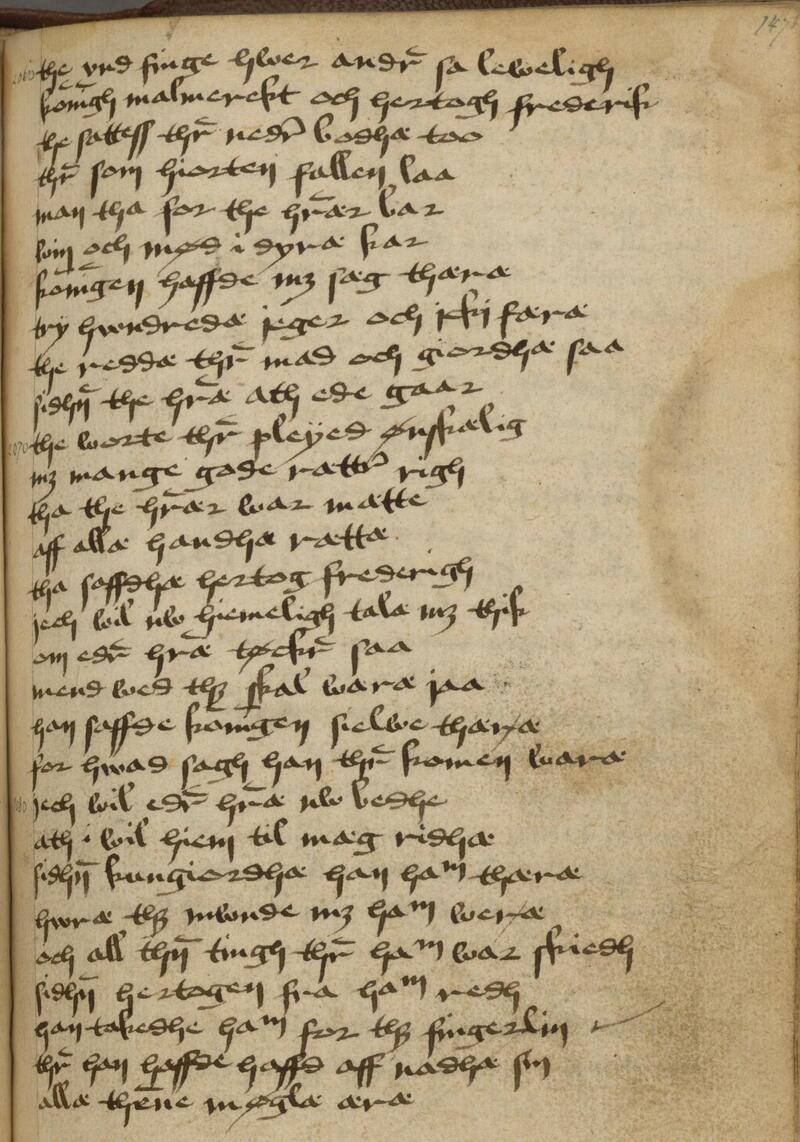 147
the vnd finge hwer andr̄ sa leweligh
kon̄igh malmerekt och hertogh frederik
the sattess thr̄ nedr̄ bodhæ too
thr̄ som hiorten fallen laa
man tha for the hr̄ær bar
win och mød i dyræ kar
kon̄igen haffde mꝫ sæg thæræ
try hwndredæ jeger och jcki færæ
the reddæ thr̄ mad och giordhæ saa
sidhn̄ the hr̄æ ath ede gaar
2070 the worte thr̄ pleyed ønskælig
mꝫ mange gode rættr̄ righ
tha the hr̄ær war mætte
aff allæ handhæ rættæ
tha saffdhæ hertog frederigh
jech wil nw hiemeligh talæ mꝫ thik
om edr̄ hr̄æ tøckr̄ saa
mend wed thꝫ skal waræ jaa
han saffde kon̄igen sielwe thæræ
for hwad sagh han thr̄ komen waræ
jech wil edr̄ hr̄æ nw bedhe
ath i wil hiem til mæg ridhæ
sidhn̄ kungiordhæ han haᵐ thæræ
hwræ thꝫ mwnde mꝫ haᵐ weræ
och all thn̄ tingh thr̄ haᵐ war skiedh
sidhn̄ hertogen fra haᵐ redh
han takedhe haᵐ for thꝫ fingerlin
thr̄ han haffde haffd aff nadhæ sin
allæ then̄e møglæ æræ